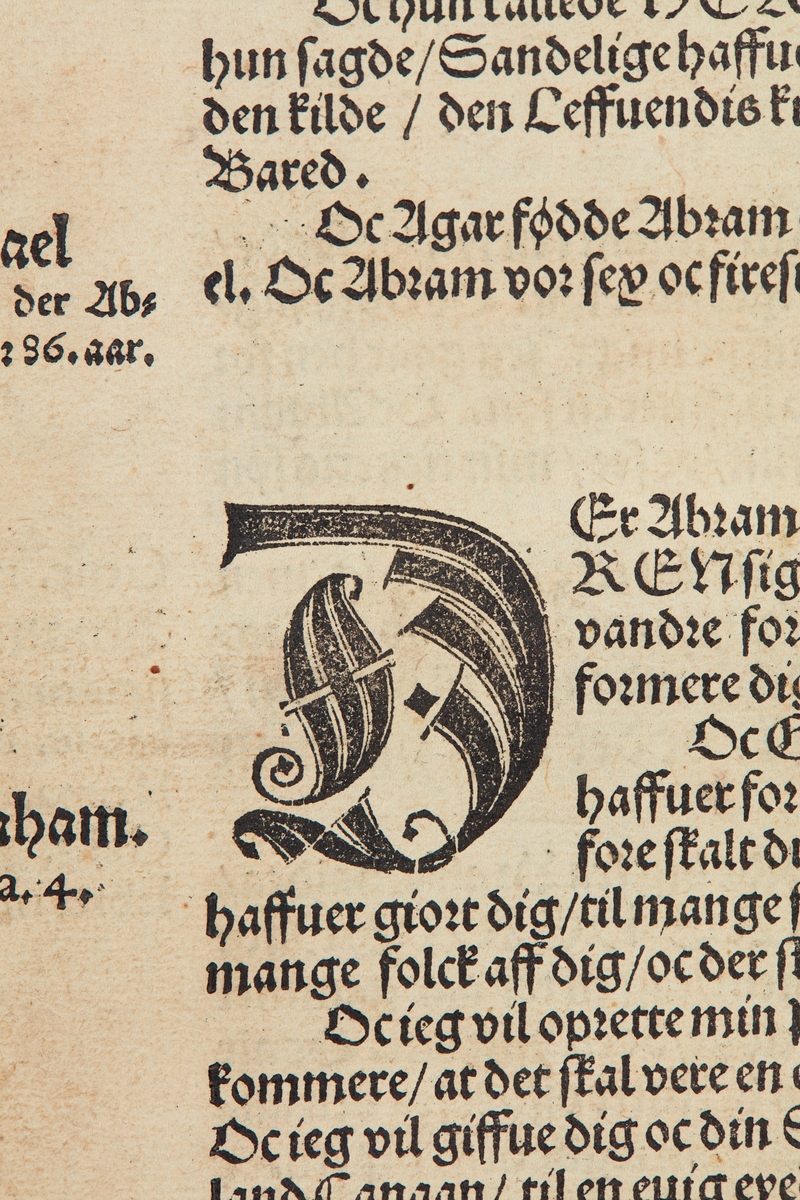 Oc hun kallede HER
hun sagde/Sandelige haffue
den kilde / den Leffuendis k
Bared.
Oc Agar fødde Abram
el. Oc Abram vor sex oc fires
ael
der Ab⸗
86. aar.
DEr Abram
REN sig
vandre for
formere dig
Oc
haffuer for
fore skalt du
haffuer giort dig/til mange
mange folck aff dig/oc der
Oc ieg vil oprette min
kommere/ at det skal vere en
Oc ieg vil giffue dig oc din S
land Canaan/ til en euig eye
aham.
a. 4.